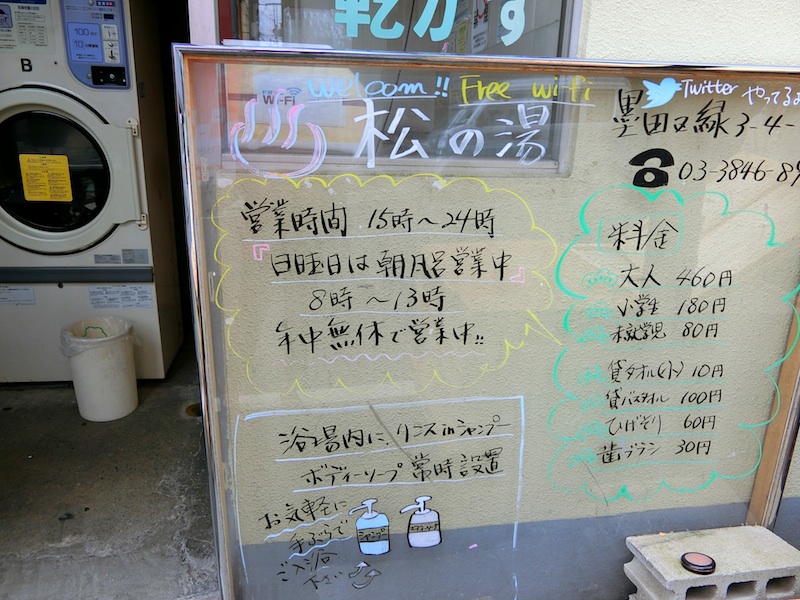 乾かす
B
100円
10分
Weloom!! Free wifi
Wi-Fi
Twitter やってるよ
松の湯
墨田区緑3-4-
03-3846-89
営業時間 15時～24時
『日曜日は朝風呂営業中』
8時～13時
年中無休で営業中!!
料金
大人 460円
小学生 180円
未就学児 80円
貸タオル(小) 10円
貸バスタオル 100円
ひげそり 60円
歯ブラシ 30円
浴場内に、リンスinシャンプー
ボディーソープ常時設置
お気軽に
手ぶらで
ご入浴
下さい
シャンプー
ボディソープ